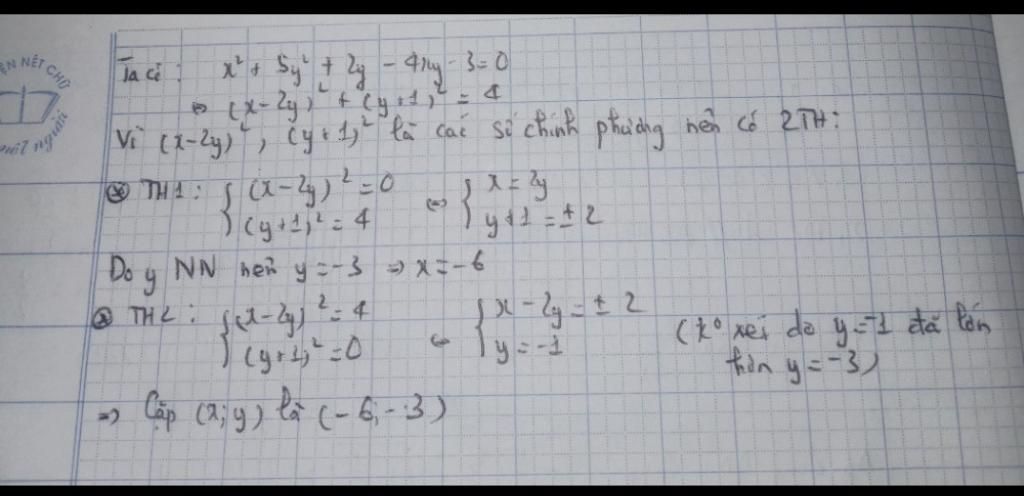 ỆN NÉT CHỮ
Ta có: x² + 5y² + 2y - 4xy - 3 = 0
⇔ (x-2y)² + (y+1)² = 4
Vì (x-2y)², (y+1)² là các số chính phương nên có 2TH:
⊛ TH1: { (x-2y)² = 0 ⇔ { x = 2y
(y+1)² = 4 y+1 = ± 2
Do y NN nên y = -3 ⇒ x = -6
⊛ TH2: { (x-2y)² = 4 ⇔ { x - 2y = ± 2
(y+1)² = 0 y = -1
(k° xét do y = -1 đã lớn
hơn y = -3)
⇒ Cặp (x; y) là (-6; -3)